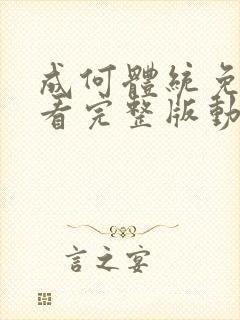 成何體統免
看完整版動
言之宴